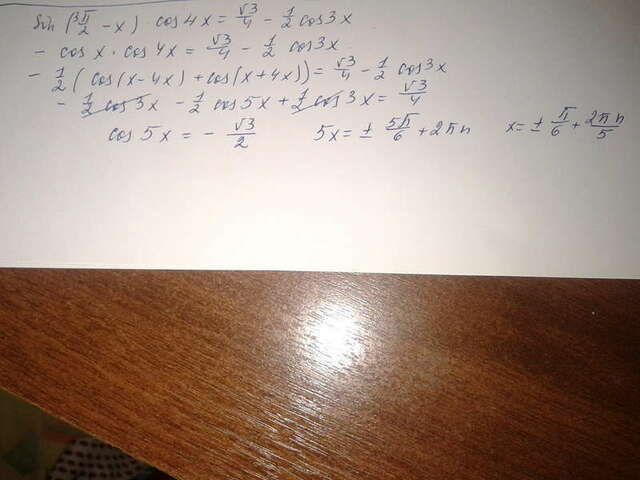 Sin (3π/2 - x) cos 4x = √3/4 - 1/2 cos 3x
- cos x · cos 4x = √3/4 - 1/2 cos 3x
- 1/2 ( cos(x-4x) + cos(x+4x)) = √3/4 - 1/2 cos 3x
- 1/2 cos 3x - 1/2 cos 5x + 1/2 cos 3x = √3/4
cos 5x = - √3/2 5x = ± 5π/6 + 2πn x = ± π/6 + 2πn/5